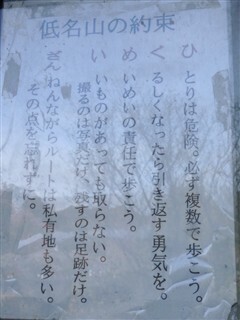 低名山の約束
ひとりは危険。必ず複数で歩こう。
くるしくなったら引き返す勇気を。
めいめいの責任で歩こう。
いいものがあっても取らない。
撮るのは写真だけ、残すのは足跡だけ。
ざんねんながらルートは私有地も多い。
その点を忘れずに。